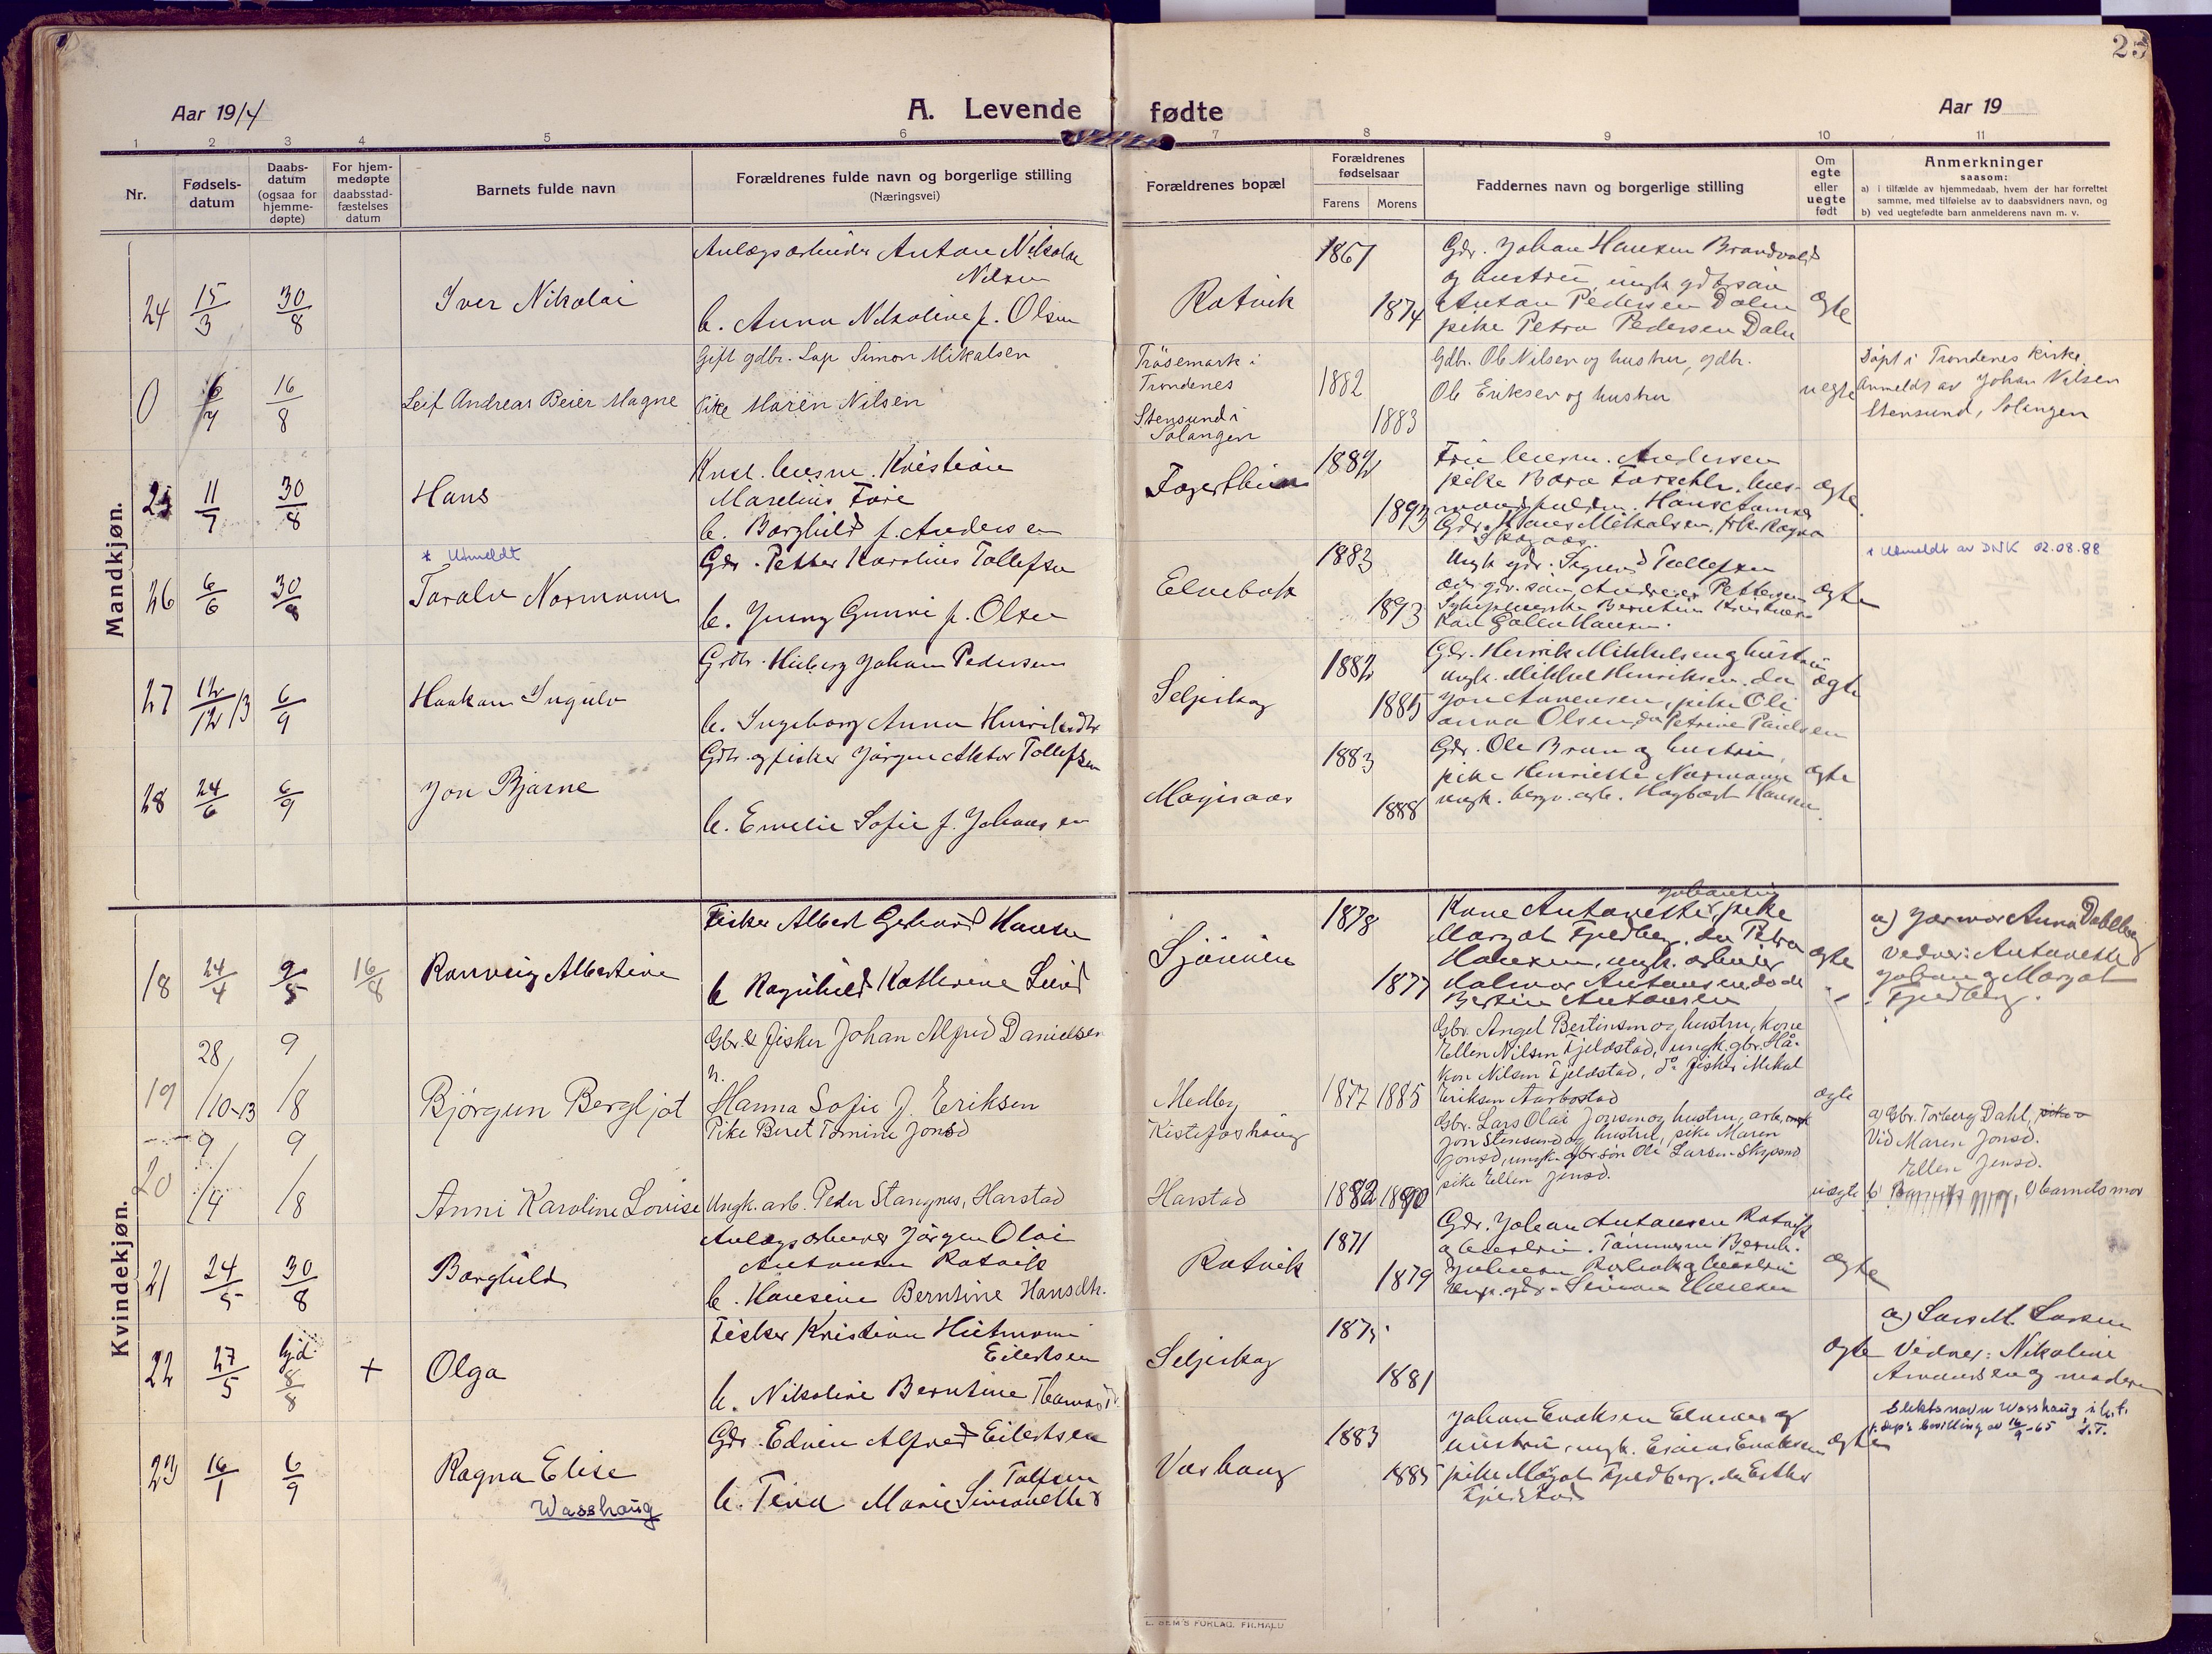 25
Aar 1914
A. Levende
fødte
Aar 19
1 2 3 4 5 6 7 8 9 10 11
Nr.
Fødsels-
datum
Daabs-
datum
(ogsaa for
hjemme-
døpte)
For hjem-
medøpte
daabsstad-
fæstelses
datum
Barnets fulde navn
Forældrenes fulde navn og borgerlige stilling
(Næringsvei)
Forældrenes bopæl
Forældrenes
fødselsaar
Farens Morens
Faddernes navn og borgerlige stilling
Om
egte
eller
uegte
født
Anmerkninger
saasom:
a) i tilfælde av hjemmedaab, hvem der har forrettet
samme, med tilføielse av to daabsvidners navn, og
b) ved uegtefødte barn anmelderens navn m. v.
Mandkjøn.
24 15/3 30/8
Iver Nikolai
Anlægsarbeider Anton Nikolai
Nilsen
h. Anna Nikoline f. Olsen
Rotvik
1867
1874
Gdr. Johan Hansen Brandvold
og hustru, ungk. gdrsøn
Anton Pedersen Dalen
pike Petra Pedersen Dalen
ægte
0 6/7 16/8
Leif Andreas Beier Magne
Gift gdbr. Lap Simon Mikalsen
Pike Maren Nilsen
Trøsemark i
Trondenes
Stensund i
Salangen
1882
1883
Gdbr. Ole Nilsen og hustru, gdbr.
Ole Eriksen og hustru
uegte
Døpt i Trondenes kirke,
Anmeldt av Johan Nilsen
Stensund, Salangen
25 11/7 30/8
Hans
Marelius Fore
h. Borghild f. Andersen
1893
Andersen
ægte
26 6/6 30/8
* Utmeldt
Toralv Normann
Gdr. Petter Karolius Tollefsen
h. Jenny Gunvi f. Olsen
Elvebak
1883
1893
Ungk. gdr. Sigurd Tollefsen
ægte
* Utmeldt av DNK 02.08.88
27 12/12 13 6/9
Haakon Ingulv
Johan Pedersen
h. Ingeborg Anna Henriksdtr
Seljeskog
1882
1885
Gdr. Henrik Mikkelsen og hustru
ungk. Mikkel Henriksen, do
Jon Arnensen, pike Oli
anna Olsen, do Petrine Paulsen
ægte
28 24/6 6/9
Jon Bjarne
Gdbr. og fisker Jørgen Aktor Tollefsen
h. Emelie Sofie f. Johansen
Mogisaas
1883
1888
Gdr. Ole Brun og hustru,
pike Henriette Normann
ungk. bergv. arb. Hagbart Hansen
ægte
Kvindekjøn.
18 24/4 9/5 16/8
Ranveig Albertine
Fisker Albert Gerhard Hansen
h. Ragnhild Kathrine Lund
Sjøveien
1878
1877
Johansen
Kone Antonette, pike
Margot Fjeldberg, do Petra
Hansen, ungk. arbeider
Halvor Antonsen do do
Bertin Antonsen
ægte
a) Jormor Anna Dahlberg
vidner: Antonette
Johan og Margot
Fjeldberg.
19 28/10-13 9/8
Bjørgun Bergljot
Gbr. & fisker Johan Alfred Danielsen
h.
Hanna Sofie f. Eriksen
Medby
1877 1885
Gbr. Angel Bertinsen og hustru, Kone
Ellen Nilsen Fjeldstad, ungk. gbr. Hå-
kon Nilsen Fjeldstad, do fisker Mikal
Eriksen Aarbostad
ægte
20 9/4 9/8
Anni Karoline Lovise
Pike Beret Tomine Jonsd
Ungk. arb. Peder Stangnes, Harstad
Kistefoshaug
Harstad
1882 1890
Gbr. Lars Olai Jonsen og hustru, arb.
Jon Stensund og hustru, pike Maren
Jonsd, ungk. gbr.søn Ole Larsen
pike Ellen Jensd.
uægte
a) Gbr. Torberg Dahl,
Vid Maren Jonsd.
Ellen Jensd.
b) barnets mor
21 24/5 30/8
Borghild
Anlægsarbeider Jørgen Olai
Antonsen Rotvik
h. Hansine Berntine Hansdtr.
Rotvik
1871
1879
Gdr. Johan Antonsen Rotvik
og hustru. Tømmerm. Bernh.
Johnsen Rotvik og hustru
ungk. gdr. Simon Hansen
ægte
22 27/5 hjd. 8/8 +
Olga
Fisker Kristian Hitmann
Eilertsen
h. Nikoline Berntine Thomasd.
Seljeskog
1875
1881
ægte
a) Lars M. Larsen
Vidner: Nikoline
Amundsen og moderen
23 16/1 6/9
Ragna Elise
Wasshaug
Gdr. Edvin Alfred Eilertsen
h. Tina Marie Simonette
Vashaug
1883
1885
Johan Enoksen Elvenes og
hustru, ungk. Esaias Enoksen
pike Margot Fjeldberg, do Esther
Fjeldstad
ægte
Slektsnavn Wasshaug i h.t.
j. dep's bevilling av 16/9-65